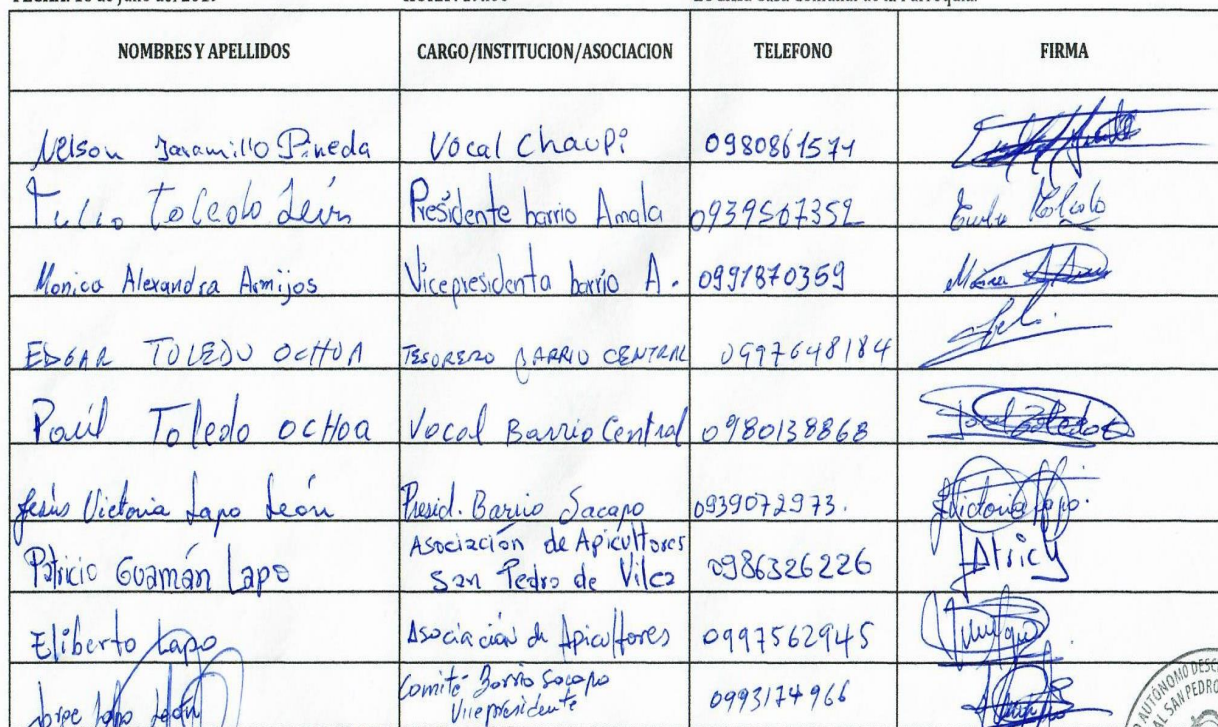 NOMBRES Y APELLIDOS CARGO/INSTITUCION/ASOCIACION TELEFONO FIRMA
Nelson Jaramillo Pineda Vocal Chaupi 0980861571
Tulio Toledo León Presidente barrio Amala 0939507352 Tulio Toledo
Monica Alexandra Armijos Vicepresidenta barrio A. 0991870359
EDGAR TOLEDO OCHOA TESORERO BARRIO CENTRAL 0997648184
Paúl Toledo OCHOA Vocal Barrio Central 0980138868
Jesús Victoria Lapo León Presid. Barrio Sacapo 0939072973. Victoria Lapo.
Patricio Guamán Lapo Asociación de Apicultores
San Pedro de Vilca 0986326226
Eliberto Lapo Asociación de Apicultores 0997562945
Jorge Lapo Comité Barrio Sacapo
Vicepresidente 0993174966
SAN PEDRO